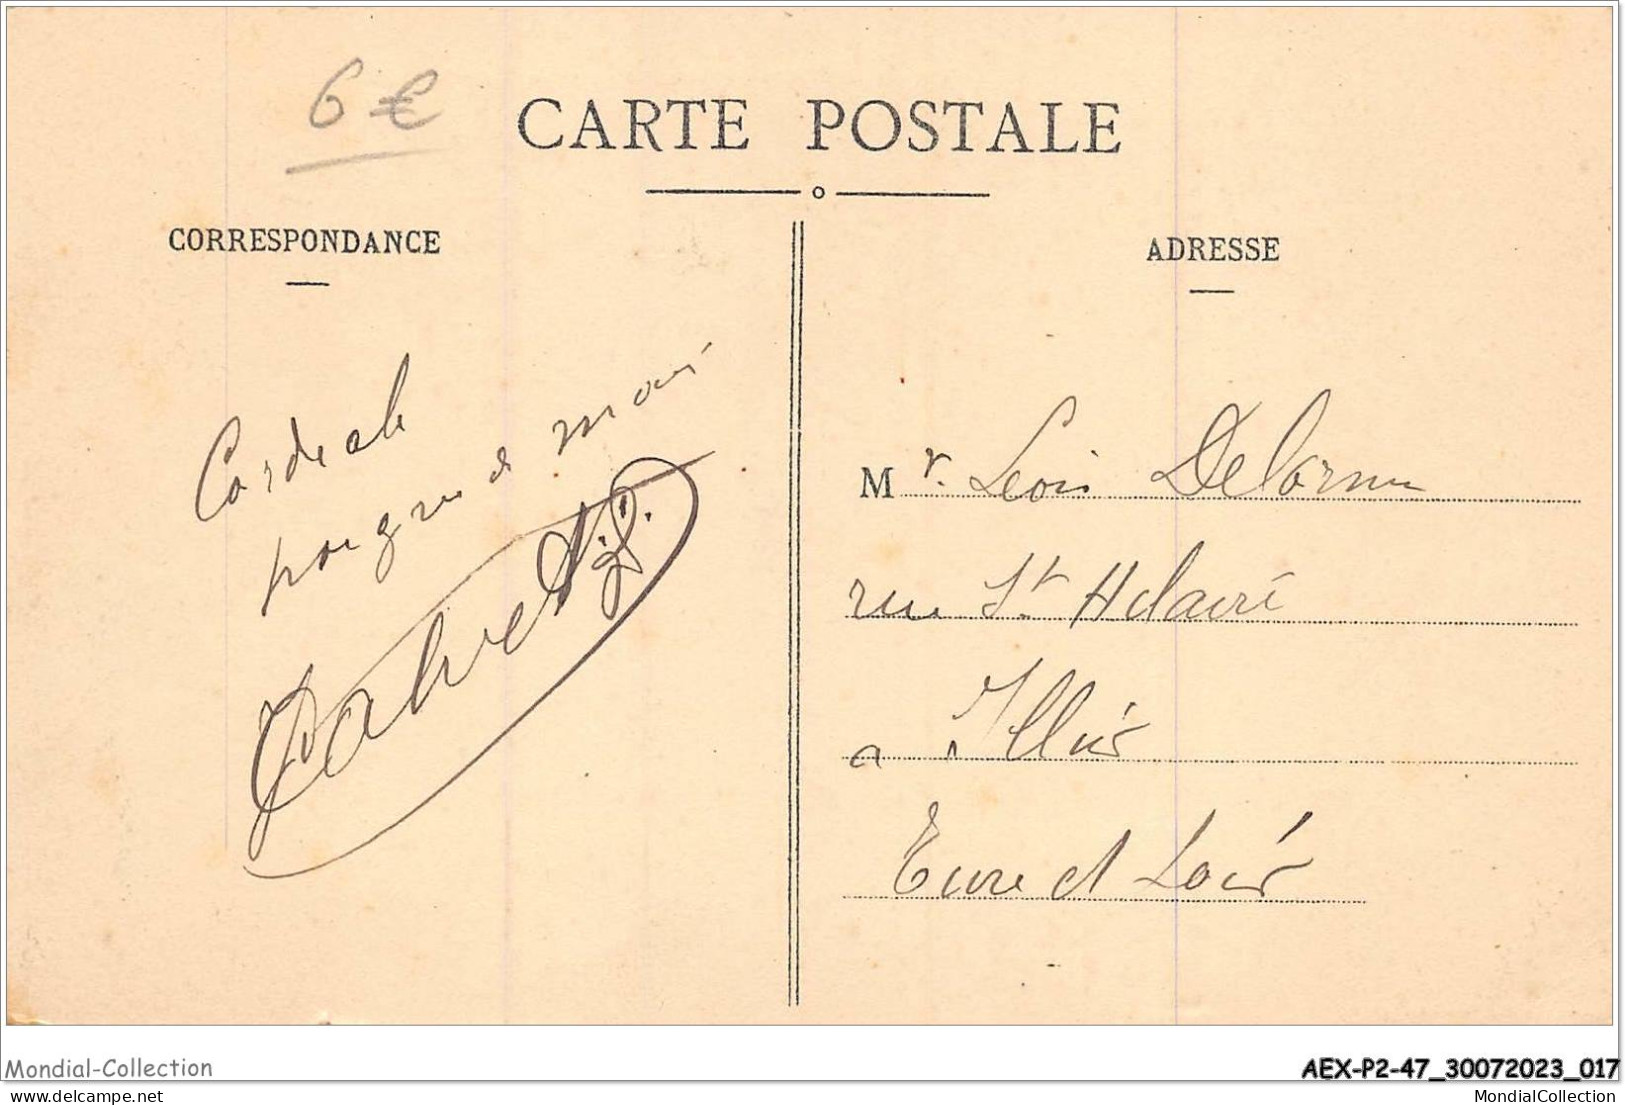 6 €
CARTE POSTALE
CORRESPONDANCE
ADRESSE
Cordiale
poignée de main
Mr. Léon Delorme
rue St Hilaire
a Illiers
Eure et Loir
Mondial-Collection
AEX-P2-47_30072023_017
delcampe.net
MondialCollection